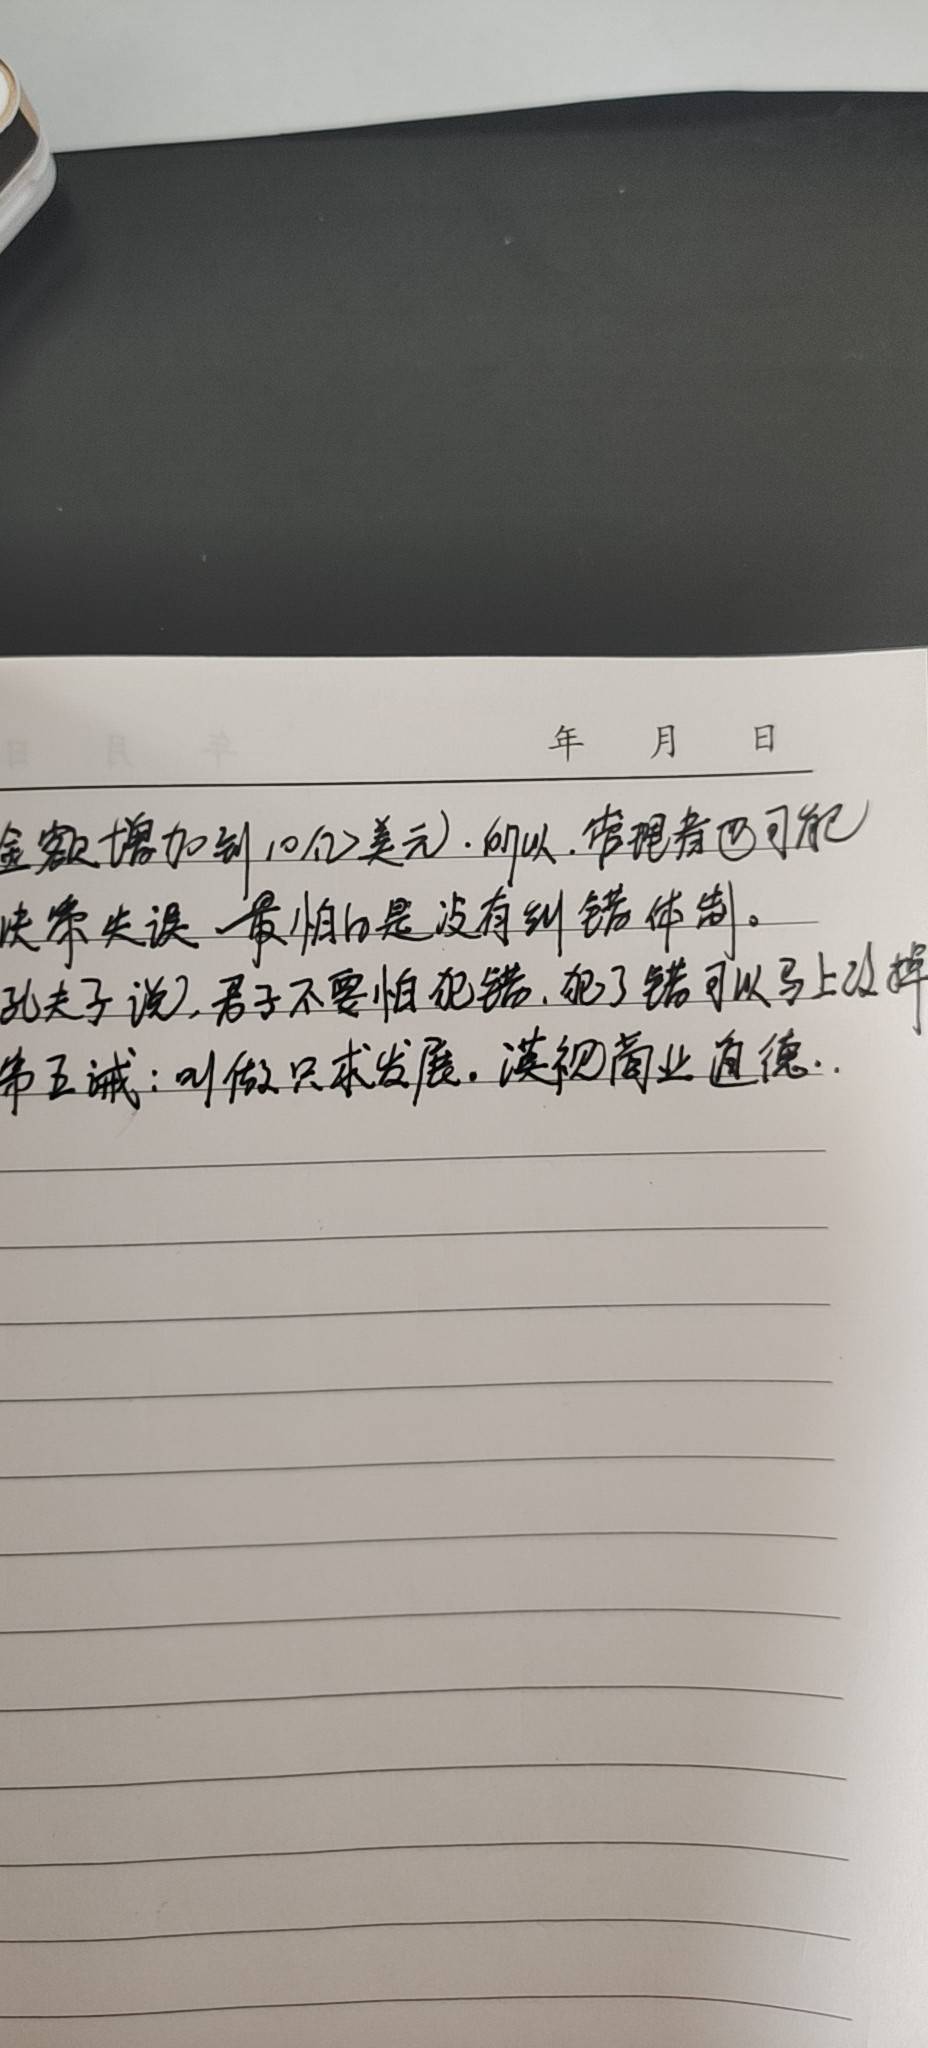 年 月 日
金额增加到10亿美元)．所以．管理者也可能
决策失误 最怕的是没有纠错体制。
孔夫子说，君子不要怕犯错．犯了错可以马上改掉
第五诫：叫做只求发展．漠视商业道德．.